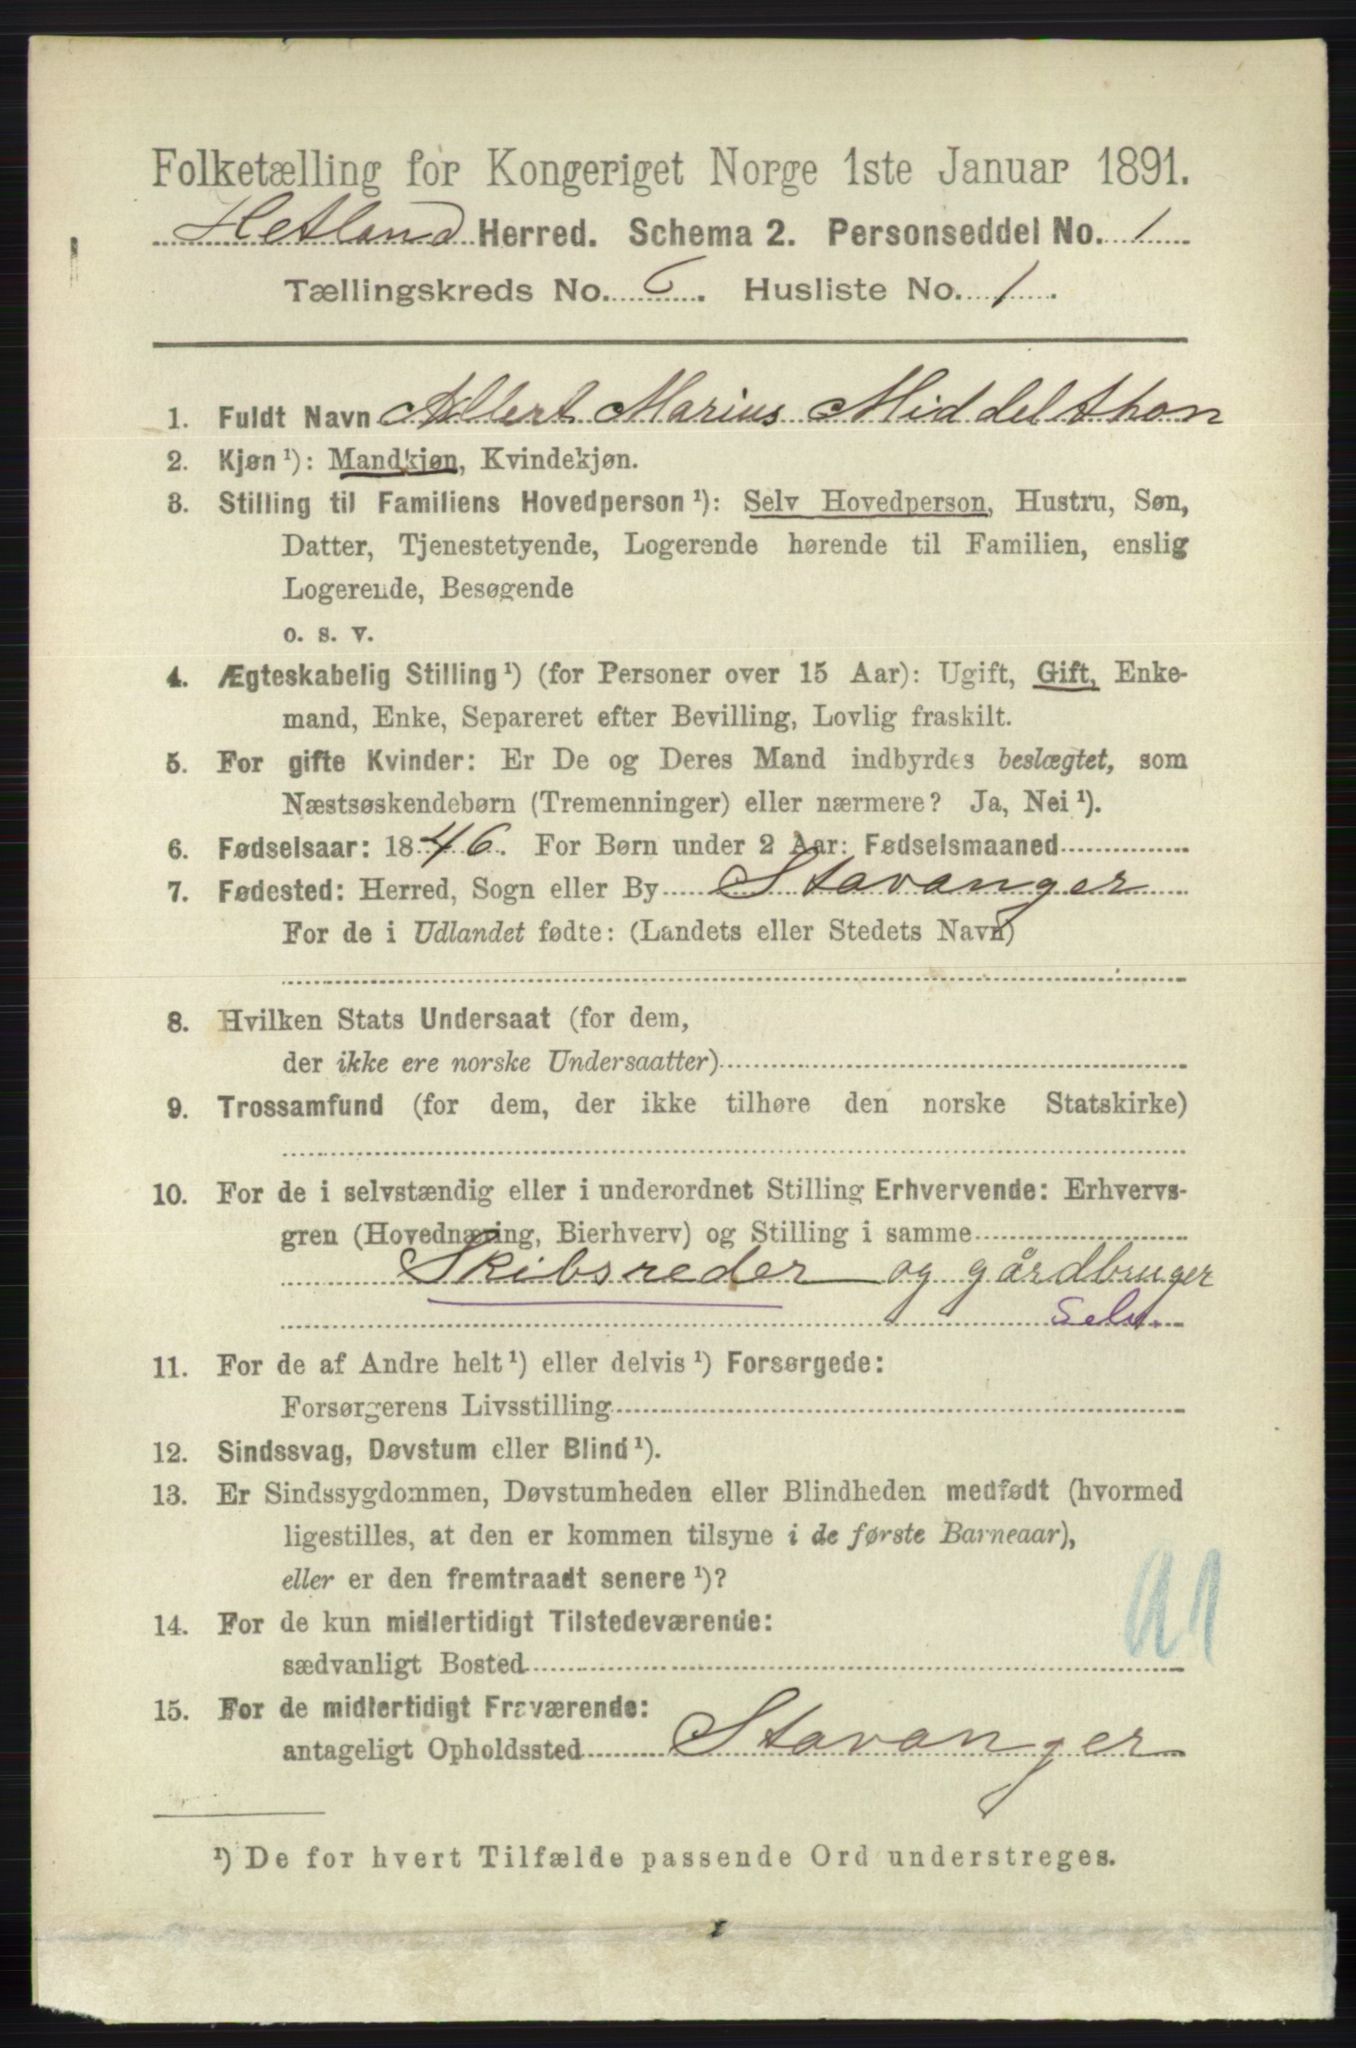 Folketælling for Kongeriget Norge 1ste Januar 1891.
Hetland Herred. Schema 2. Personseddel No. 1
Tællingskreds No. 6. Husliste No. 1.
1. Fuldt Navn Albert Marius Middelthon
2. Kjøn ¹): Mandkjøn, Kvindekjøn.
3. Stilling til Familiens Hovedperson ¹): Selv Hovedperson, Hustru, Søn,
Datter, Tjenestetyende, Logerende hørende til Familien, enslig
Logerende, Besøgende
o. s. v.
4. Ægteskabelig Stilling ¹) (for Personer over 15 Aar): Ugift, Gift, Enke-
mand, Enke, Separeret efter Bevilling, Lovlig fraskilt.
5. For gifte Kvinder: Er De og Deres Mand indbyrdes beslægtet, som
Næstsøskendebørn (Tremenninger) eller nærmere? Ja, Nei ¹).
6. Fødselsaar: 1846. For Børn under 2 Aar: Fødselsmaaned
7. Fødested: Herred, Sogn eller By Stavanger
For de i Udlandet fødte: (Landets eller Stedets Navn)
8. Hvilken Stats Undersaat (for dem,
der ikke ere norske Undersaatter)
9. Trossamfund (for dem, der ikke tilhøre den norske Statskirke)
10. For de i selvstændig eller i underordnet Stilling Erhvervende: Erhvervs-
gren (Hovednæring, Bierhverv) og Stilling i samme
Skibsreder og gårdbruger
Selv.
11. For de af Andre helt ¹) eller delvis ¹) Forsørgede:
Forsørgerens Livsstilling
12. Sindssvag, Døvstum eller Blind ¹).
13. Er Sindssygdommen, Døvstumheden eller Blindheden medfødt (hvormed
ligestilles, at den er kommen tilsyne i de første Barneaar),
eller er den fremtraadt senere ¹)?
14. For de kun midlertidigt Tilstedeværende:
sædvanligt Bosted
15. For de midlertidigt Fraværende:
antageligt Opholdssted Stavanger
¹) De for hvert Tilfælde passende Ord understreges.